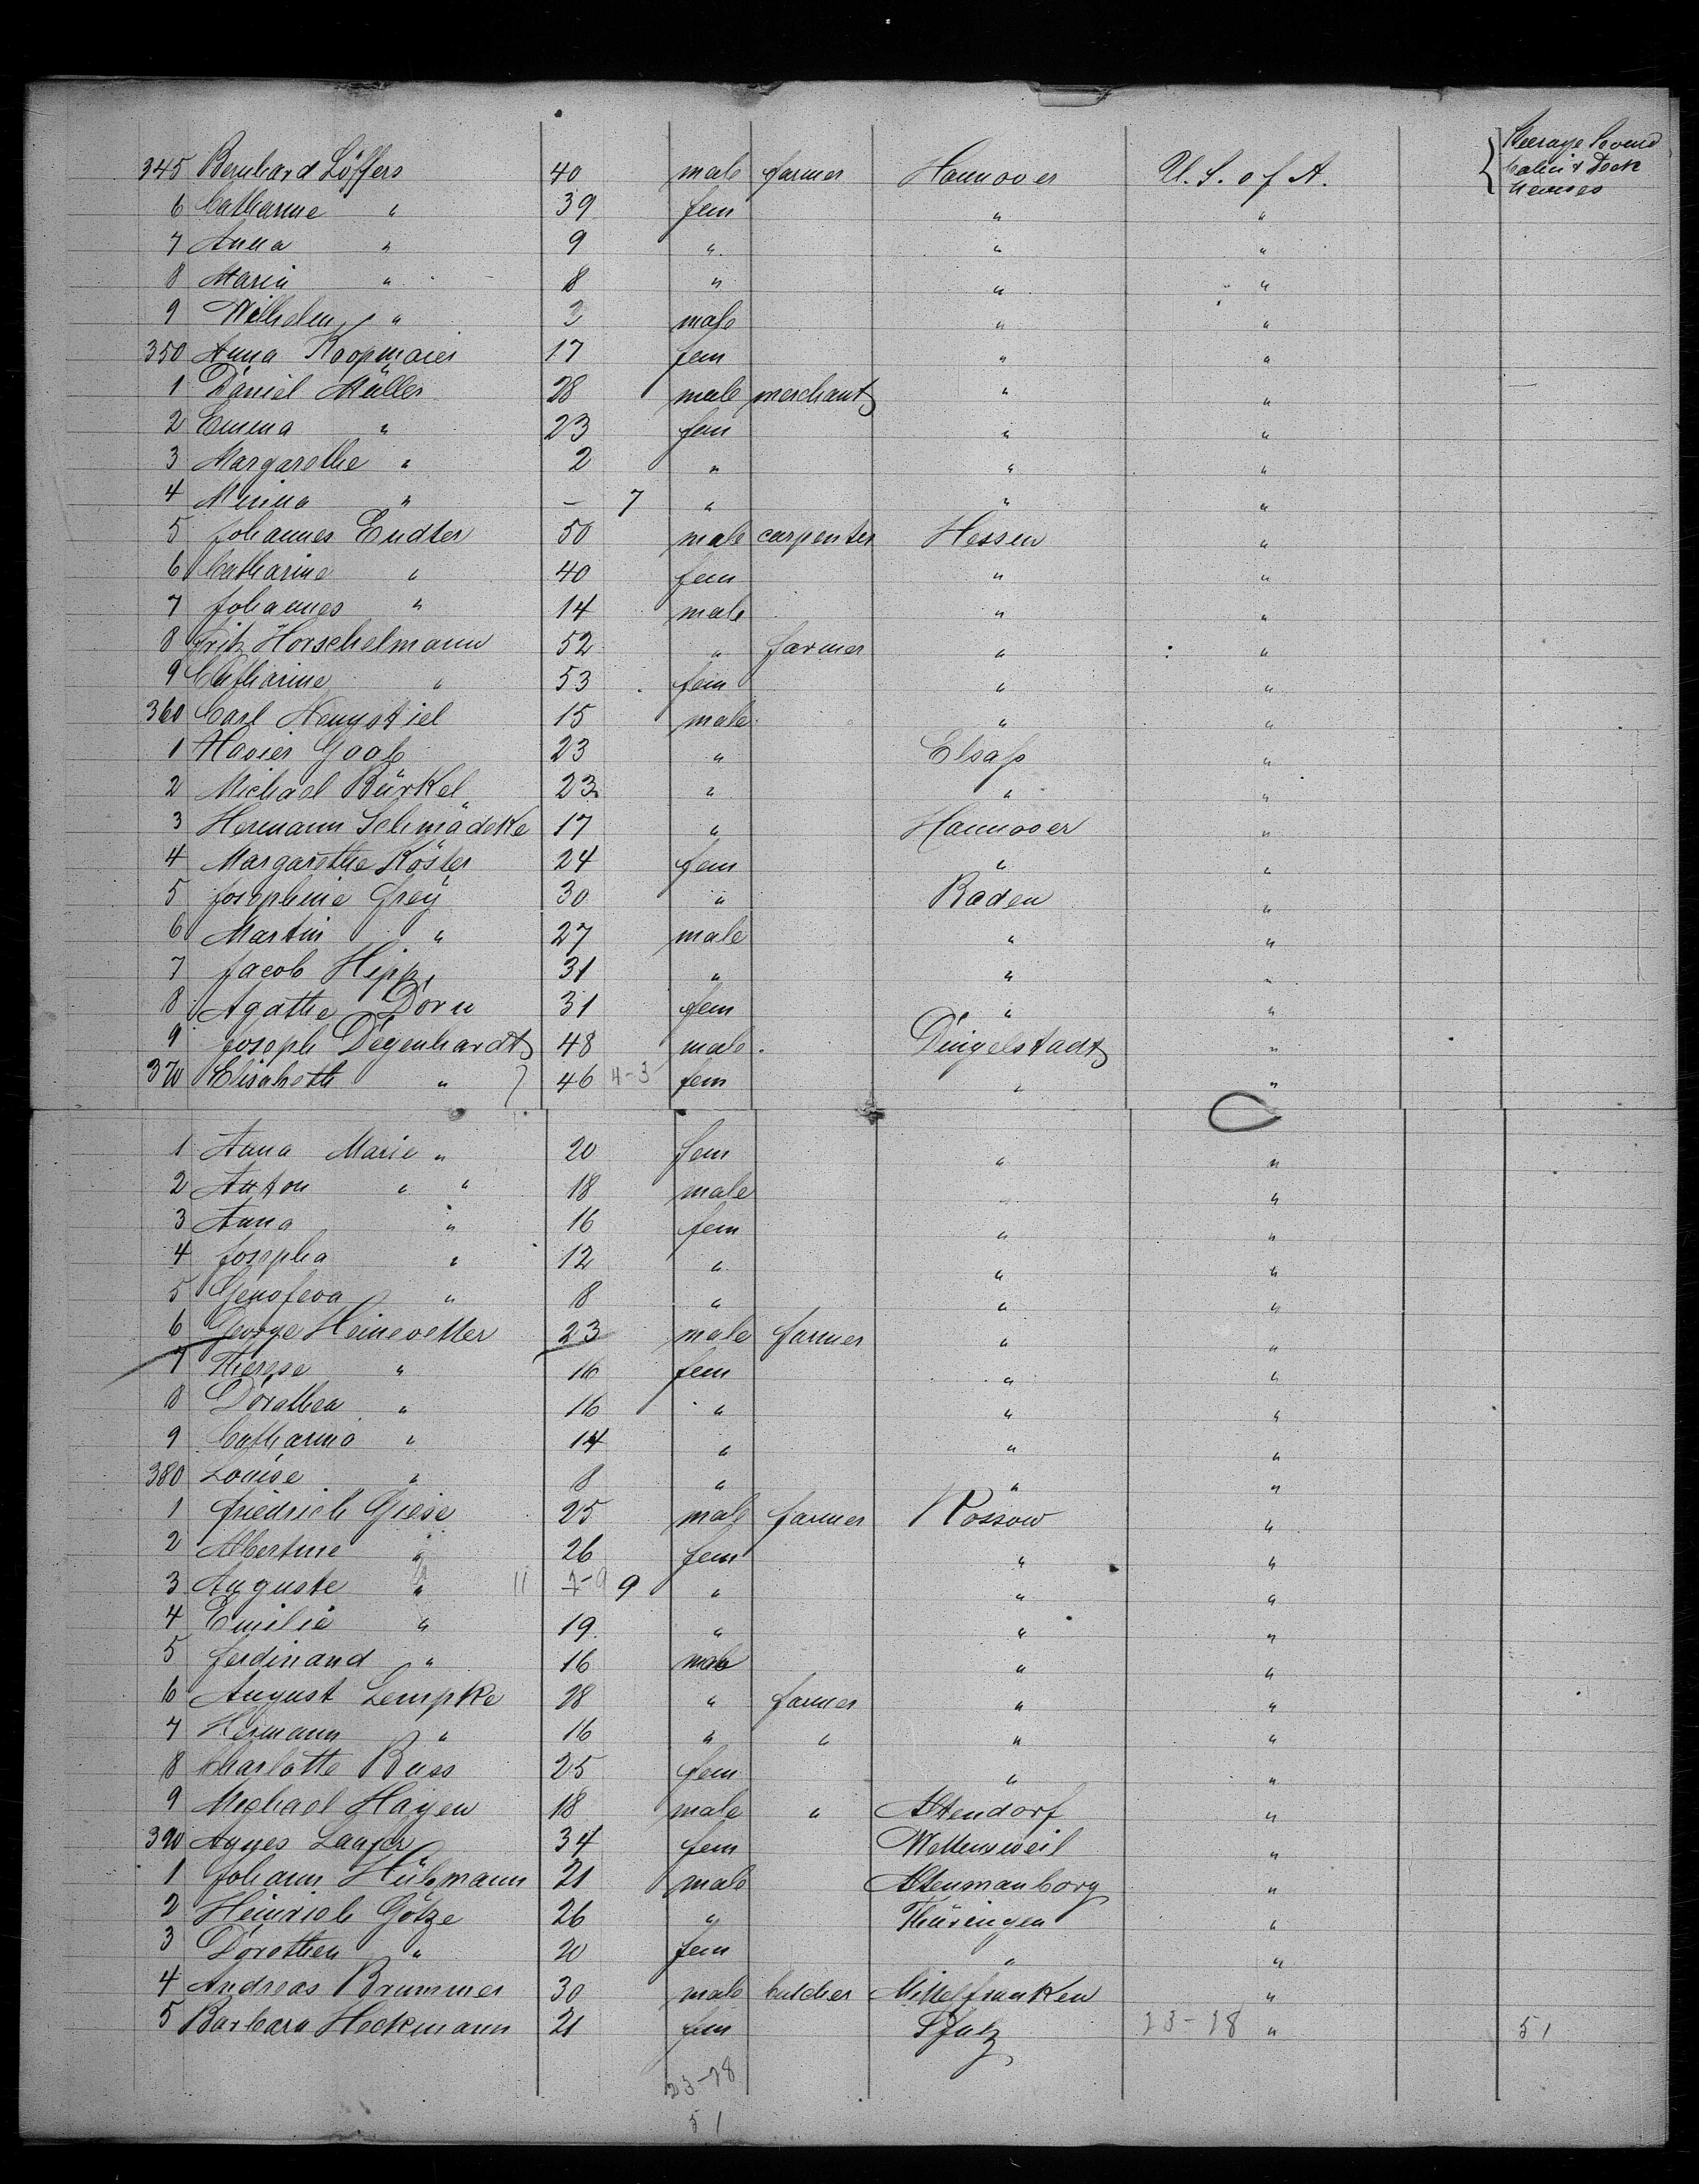 Steerage Second
Cabin & Deck
Houses
345 Bernhard Löffers 40 male farmer Hannover U. S. of A.
6 Catharine " 39 fem " "
7 Anna " 9 " " "
8 Maria " 8 " " "
9 Wilhelm " 3 male " "
350 Anna Koopmaier 17 fem " "
1 Daniel Müller 28 male merchant " "
2 Emma " 23 fem " "
3 Margarethe " 2 " " "
4 Minna " – 7 " " "
5 Johannes Endter 50 male carpenter Hessen "
6 Catharine " 40 fem " "
7 Johannes " 14 male " "
8 Fritz Horschelmann 52 " farmer " "
9 Catharine " 53 fem " "
360 Carl Hengstiel 15 male " "
1 Xavier Goob 23 " Elsaß "
2 Michael Bürkel 23 " " "
3 Hermann Schmädeke 17 " Hannover "
4 Margarethe Köster 24 fem " "
5 Josephine Frey 30 " Baden "
6 Martin " 27 male " "
7 Jacob Hipp 31 " " "
8 Agathe Dorn 31 fem " "
9 Joseph Degenhardt 48 male Dingelstadt "
370 Elisabeth " 46 4-3 fem " "
1 Anna Marie " 20 fem " "
2 Anton " " 18 male " "
3 Anna " 16 fem " "
4 Josepha " 12 " " "
5 Genofeva " 8 " " "
6 George Heinevetter 23 male farmer " "
7 Therese " 16 fem " "
8 Dorothea " 16 " " "
9 Catharina " 14 " " "
380 Louise " 8 " " "
1 Friedrich Giese 25 male farmer Rossow "
2 Albertine " 26 fem " "
3 Auguste " 11 7-9 9 " " "
4 Emilie " 19 " " "
5 Ferdinand " 16 male " "
6 August Lempke 28 " farmer " "
7 Hermann " 16 " " " "
8 Charlotte Buss 25 fem " "
9 Michael Hagen 18 male " Altendorf "
390 Agnes Langer 34 fem "
1 Johann Hülsmann 21 male "
2 Heinrich Götze 26 " Thüringen "
3 Dorothea " 20 fem " "
4 Andreas Brummer 30 male butcher Mittelfranken "
5 Barbara Heckmann 21 fem Pfalz 23-28 " 51
23-28
51